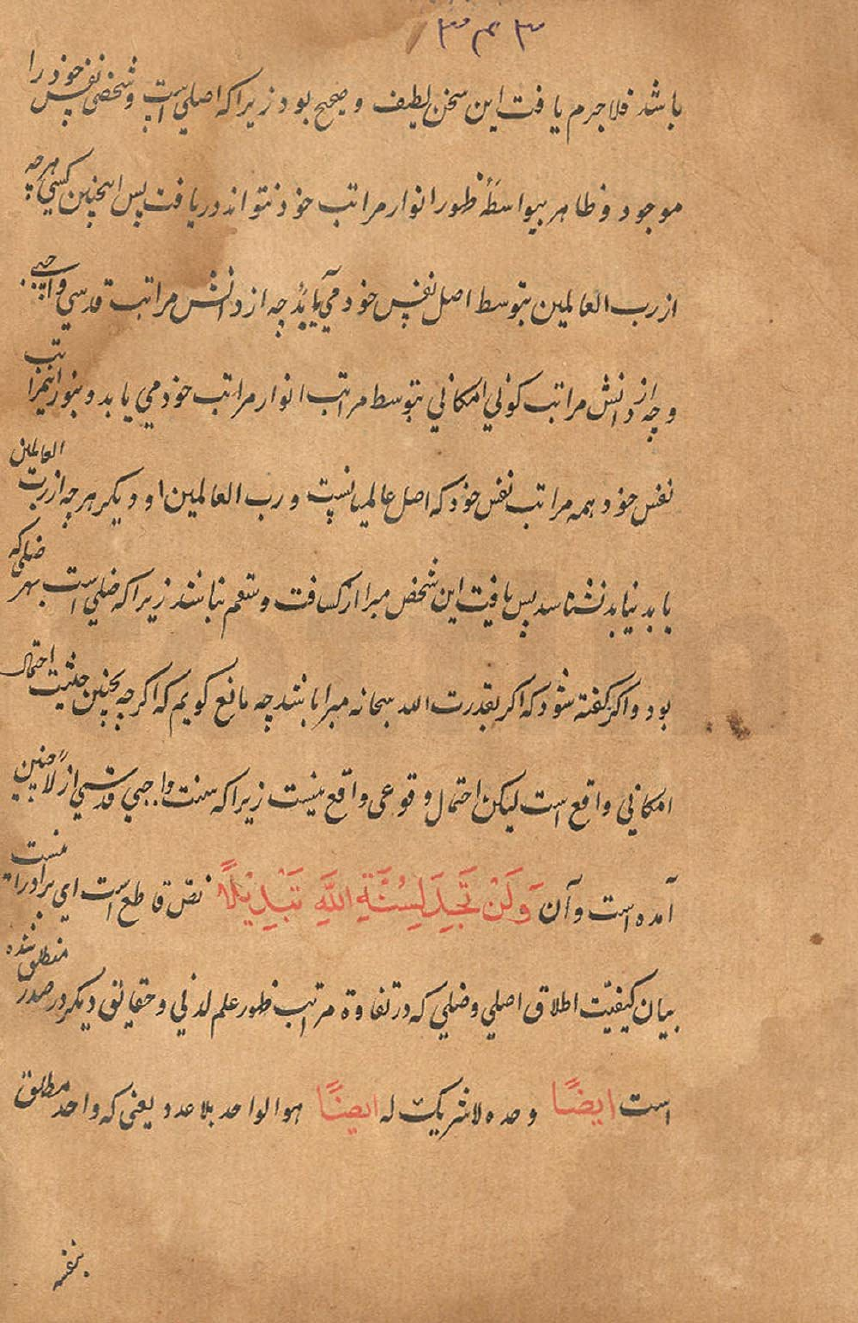 ۳۴۳
باشد فلاجرم یافت این سخن لطیف و صحیح بود زیراکه اصلی است و شخصی نفس خود را
موجود و ظاهر بیواسطهٔ ظهور انوار مراتب خود نتواند دریافت پس اینچنین کسی هرچه
از رب العالمین بتوسط اصل نفس خود می یابد چه از دانش مراتب قدسی واجبی
و چه از دانش مراتب کونی امکانی بتوسط مراتب انوار مراتب خود می یابد و بنور اینمراتب
نفس خود همه مراتب نفس خود که اصل عالمیانست و رب العالمین او و دیگر هرچه از رب العالمین
یابد نیابد نشناسد پس یافت این شخص مبرا از کسافت و سقم نباشد زیراکه ضلی است بهر ضلی که
بود و اگر گفته شود که اگر بقدرت الله سبحانه مبرا باشد چه مانع گویم که اگرچه بچنین حثیت احتمال
امکانی واقع است لیکن احتمال وقوعی واقع نیست زیراکه سنت واجبی قدسی ازلا چنین
آمده است و آن وَلَنْ تَجِدَ لِسُنَّةِ اللَّهِ تَبْدِيْلًا نص قاطع است ای برادر اینست
بیان کیفیّت اطلاق اصلی و ضلی که در تفاوة مراتب ظهور علم لدنی و حقائق دیگر در صدر منطلق شده
است ایضًا وحده لاشریک له ایضًا هوالواحد بلاعدد یعنی که واحد مطلق
بنفسه